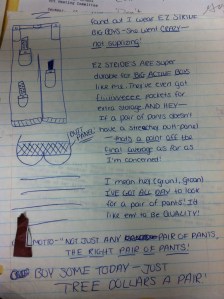 found out I wear EZ STRIDE
BIG BOYS - She went CRAZY -
not suprizing!
EZ STRIDE'S ARE super
durable for BIG ACTIVE BOYS
like me. They've even got
pockets for
extra storage. AND HEY -
If a pair of pants doesn't
have a stretchy butt-panel
- that's a point off the
final average as far as
I'm concerned!
BUTT
PANEL
I mean hey (grunt, groan)
I'VE GOT ALL DAY to look
for a pair of pants! I'd
like em to be QUALITY!
MOTTO - "NOT JUST ANY PAIR OF PANTS,
THE RIGHT PAIR OF PANTS!
BUY SOME TODAY - JUST
TREE DOLLARS A PAIR!